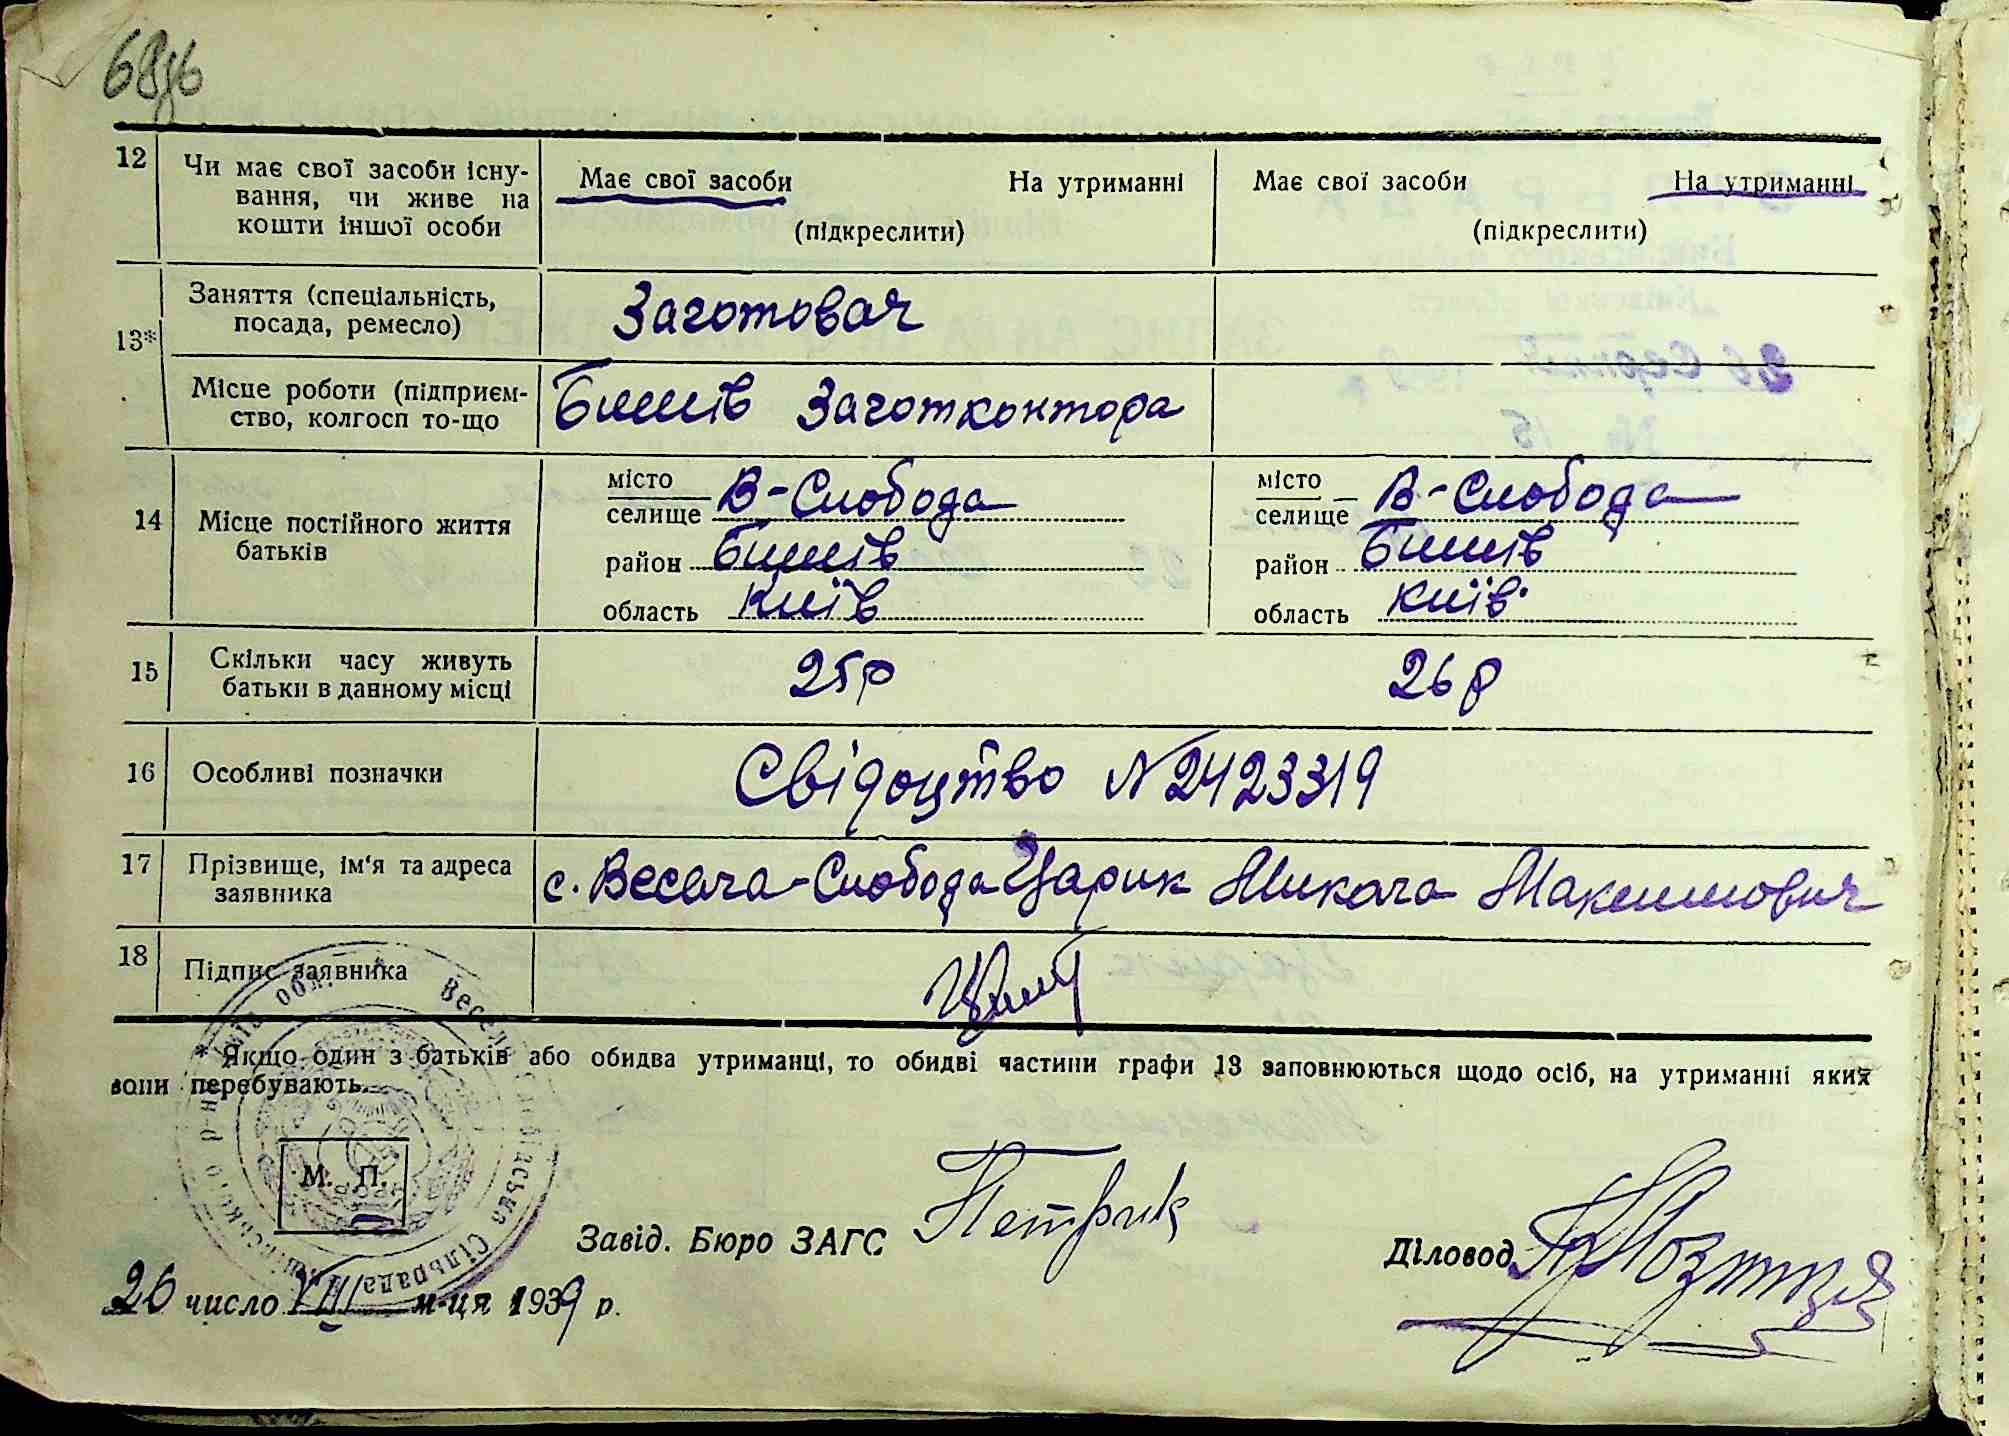 68зв
12 Чи має свої засоби існу-
вання, чи живе на
кошти іншої особи
Має свої засоби На утриманні
(підкреслити)
Має свої засоби На утриманні
(підкреслити)
13* Заняття (спеціальність,
посада, ремесло)
Заготовач
Місце роботи (підприєм-
ство, колгосп то-що
Бишів Заготконтора
14 Місце постійного життя
батьків
місто
селище В-Слобода
район Бишів
область Київ
місто
селище В-Слобода
район Бишів
область Київ
15 Скільки часу живуть
батьки в данному місці
25р 26р
16 Особливі позначки Свідоцтво №2423319
17 Прізвище, ім'я та адреса
заявника
с. Весела-Слобода Царик Микола Максимович
18 Підпис заявника
* Якщо один з батьків або обидва утриманці, то обидві частини графи 13 заповнюються щодо осіб, на утриманні яких
вони перебувають.
М. П.
Завід. Бюро ЗАГС Петрик
Діловод
26 число VIII м-ця 1939 р.